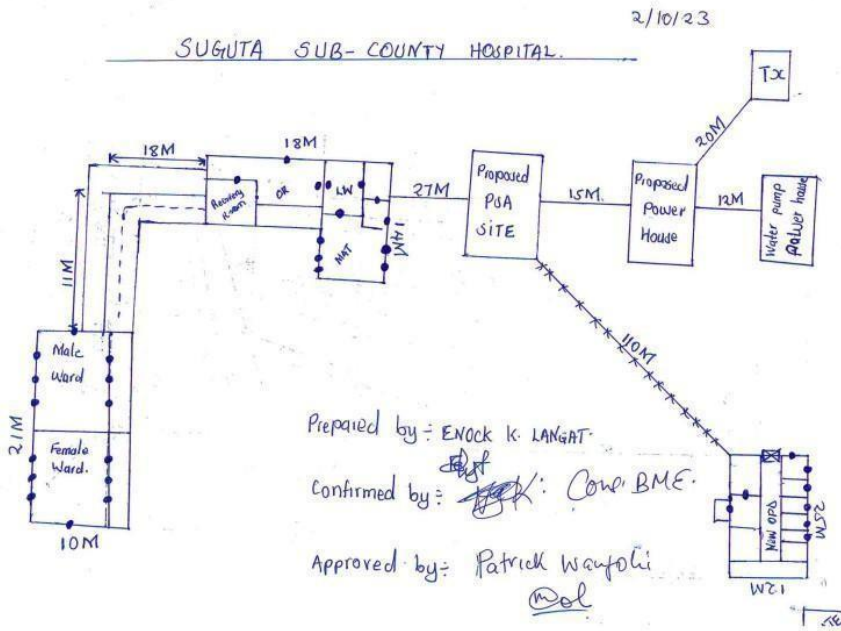 2/10/23
SUGUTA SUB-COUNTY HOSPITAL.
TX
20M
18M
18M
Recovery Room
OR
LW
MAT
14M
27M
Proposed
PSA
SITE
15M.
Proposed
Power
House
12M
Water pump
power house
11M
110M
Male
Ward
21M
Female
Ward.
10M
Prepared by:- ENOCK K. LANGAT.
Confirmed by:- Cons. BME.
Approved by:- Patrick Wanjohi
NEW OPD
25M
12M